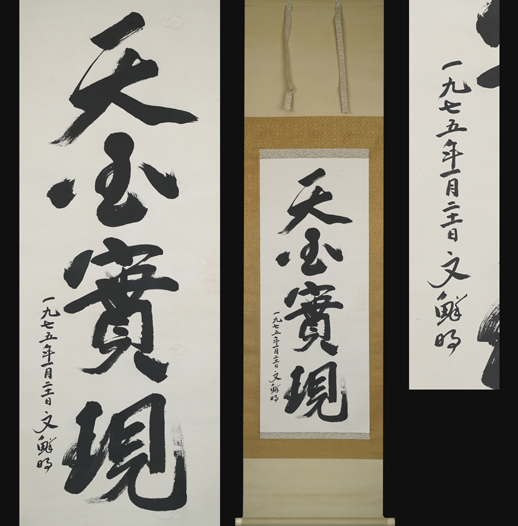 天國實現
一九七五年一月二十一日 文鮮明
天國實現
一九七五年一月二十一日 文鮮明
一九七五年一月二十一日 文鮮明